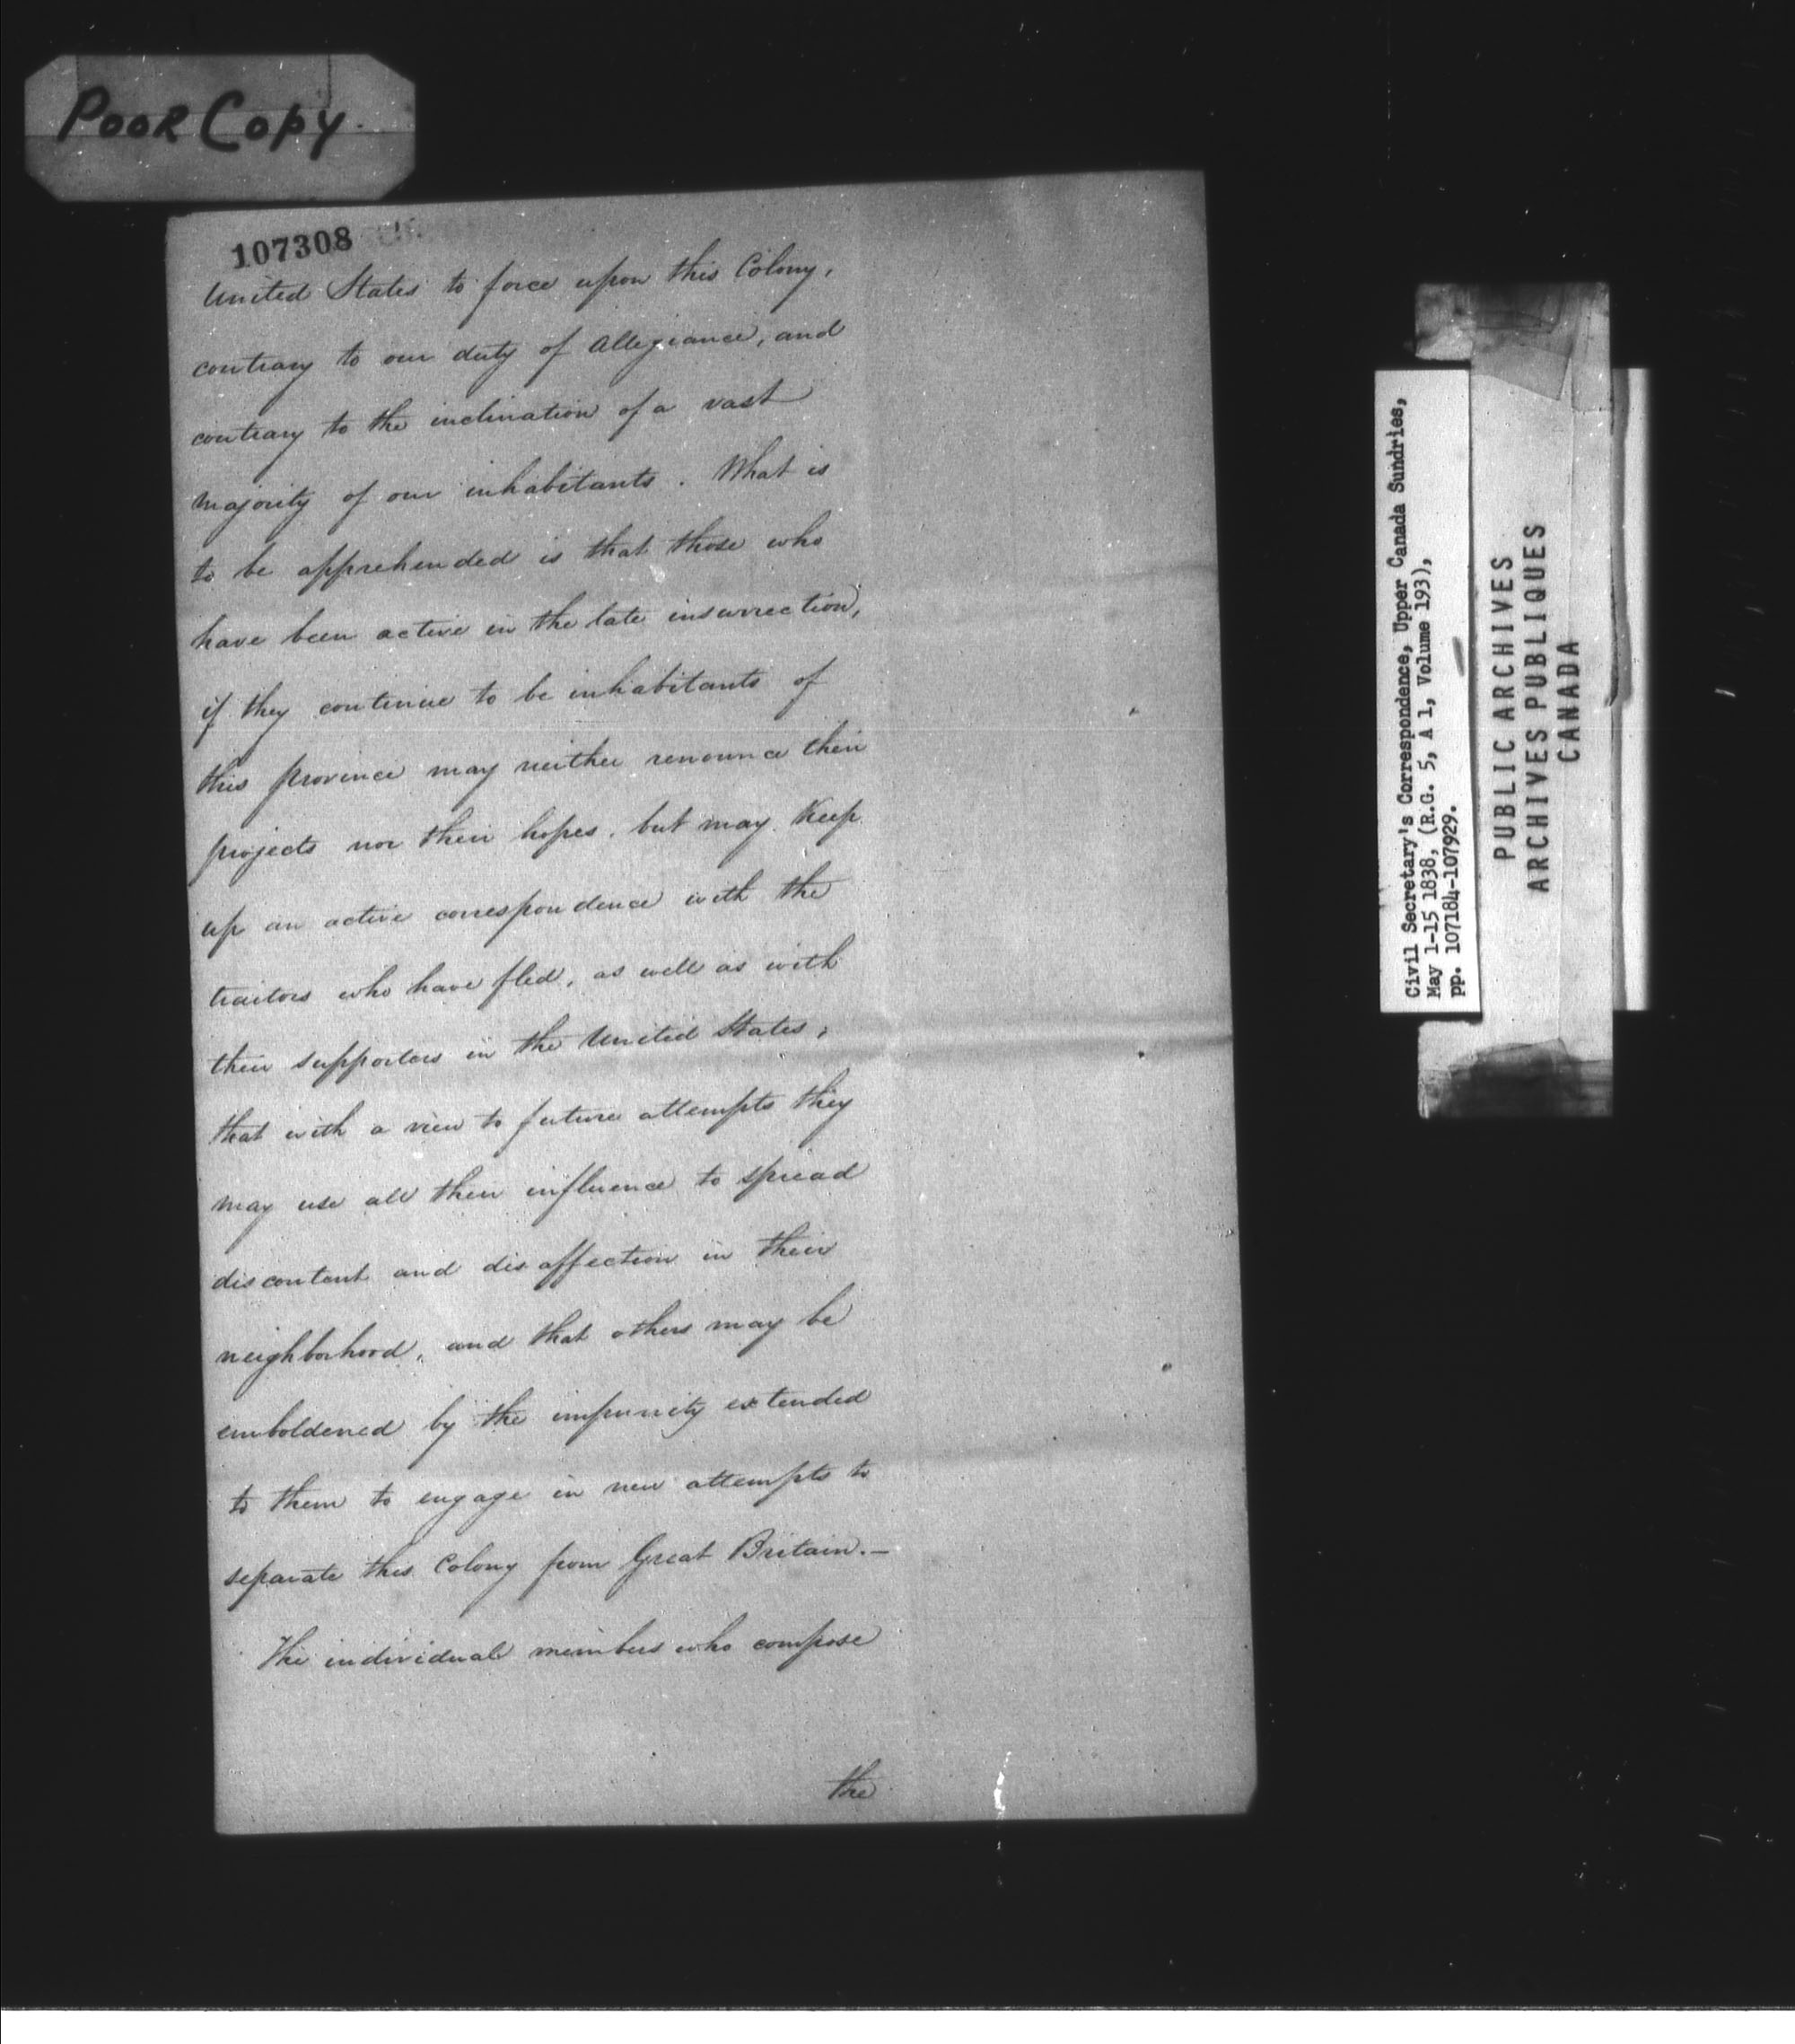 Poor Copy.
107308
United States to force upon this Colony,
contrary to our duty of Allegiance, and
contrary to the inclination of a vast
majority of our inhabitants. What is
to be apprehended is that those who
have been active in the late insurrection,
if they continue to be inhabitants of
this province may neither renounce their
projects nor their hopes, but may Keep
up an active correspondence with the
traitors who have fled, as well as with
their supporters in the United States,
that with a view to future attempts they
may use all their influence to spread
discontent and disaffection in their
neighborhood, and that others may be
emboldened by the impunity extended
to them to engage in new attempts to
separate this Colony from Great Britain.—
The individual members who compose
the
Civil Secretary's Correspondence, Upper Canada Sundries,
May 1-15 1838, (R.G. 5, A 1, Volume 193),
pp. 107184-107929.
PUBLIC ARCHIVES
ARCHIVES PUBLIQUES
CANADA